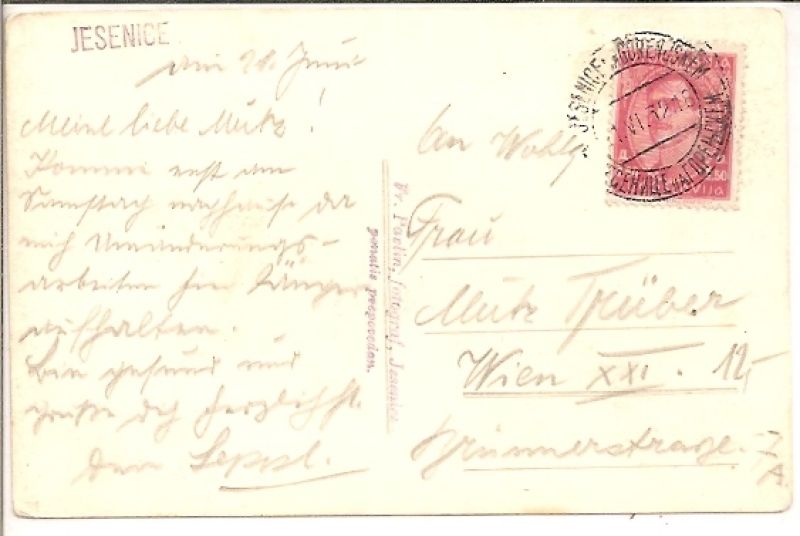 JESENICE
am 21. Juni
Meine liebe Mutz!
Komme erst am
Samstag nachhause da
mich Umänderungs-
arbeiten hier länger
aufhalten.
Bin gesund und
grüße dich herzlichst
dein Seppl.
Fr. Pavlin, fotograf, Jesenice
ponatis prepovedan.
JESENICE GORENJSKEM
VI. 32 18
ЈЕСЕНИЦЕ
50
An Wohlg
Frau
Mutz Trüber
Wien XXI. 12,
Brünnerstrasse.